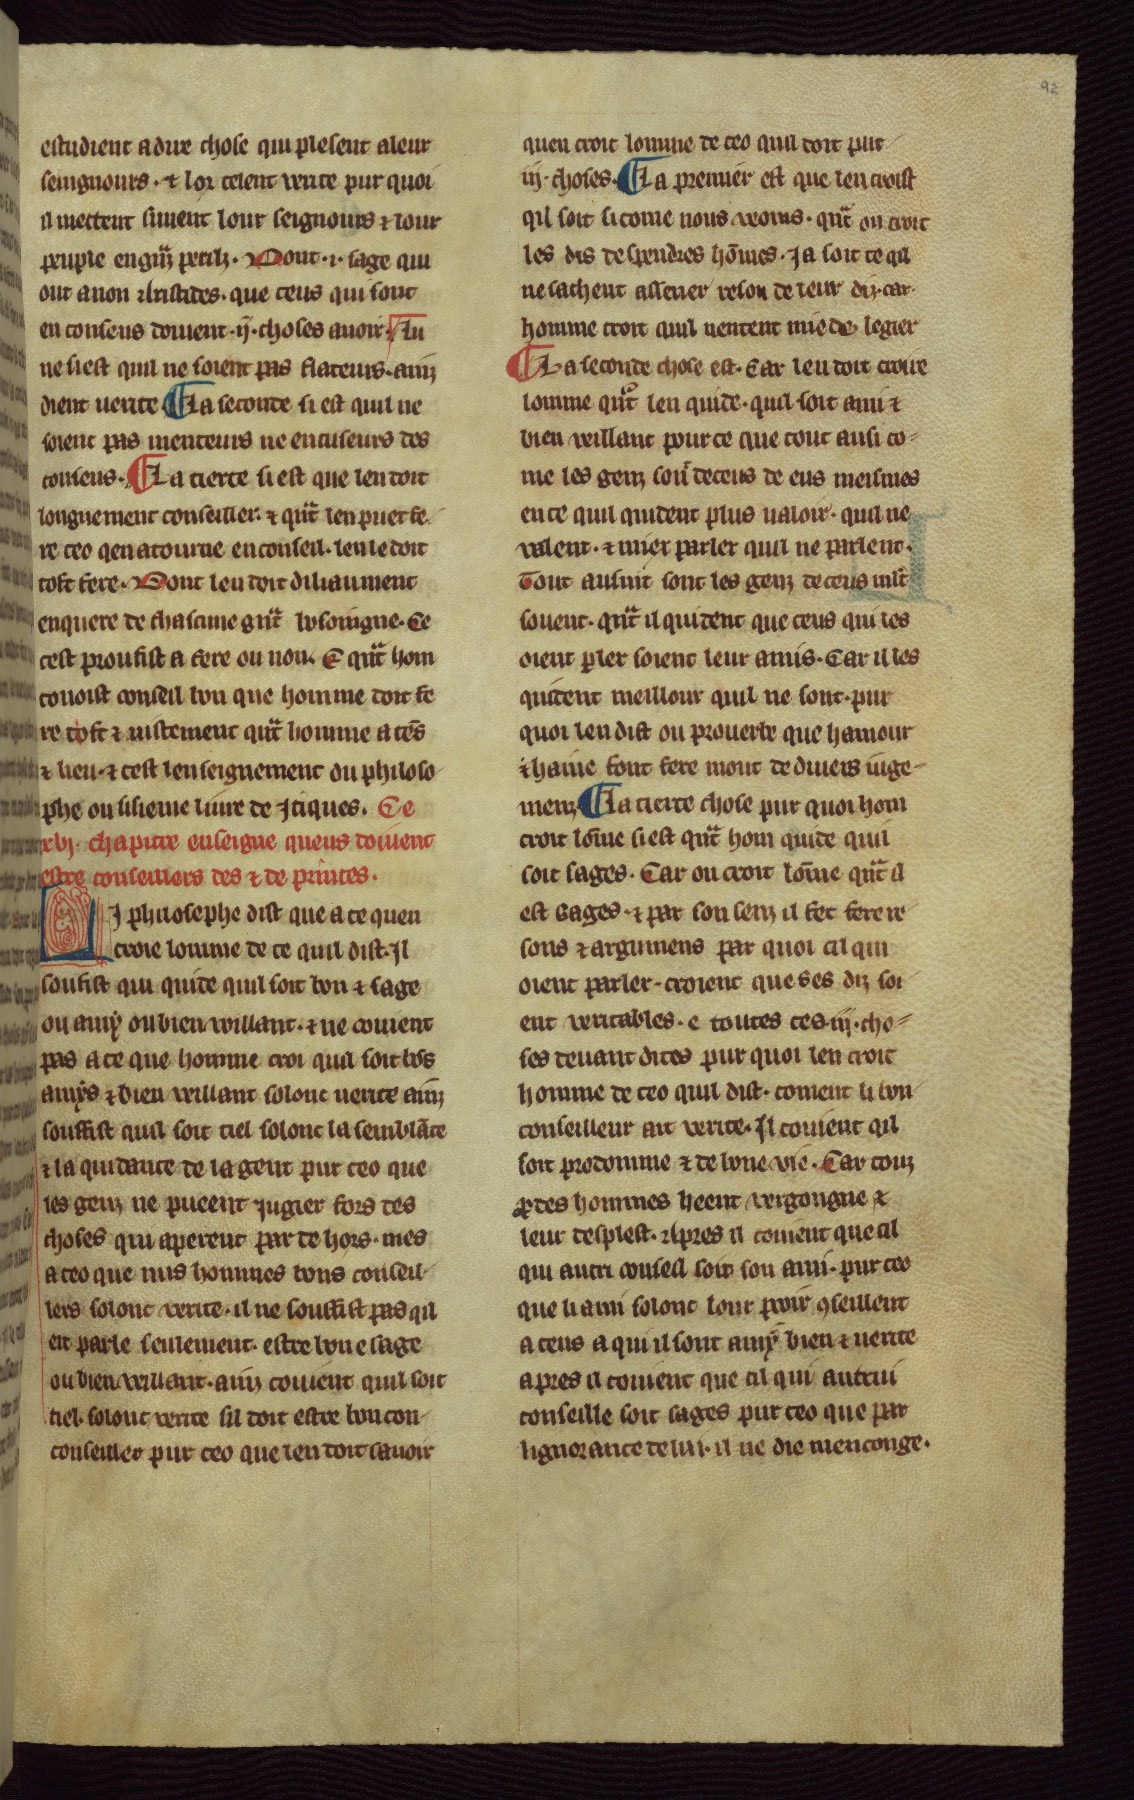 92
estudient a dire chose qui plesent a leur
seingnours · ⁊ lor celent verite pur quoi
il mettent sivent lour seignours ⁊ lour
peuple en periltz · Dont · i · sage qui
out a non Aristides · que ceus qui sont
en conseus doivent · ij · choses avoir · Lu
ne si est quil ne soient pas flateurs · ainz
dient verite La seconde si est quil ne
soient pas menteurs ne encuseurs des
conseus · La tierce si est que len doit
longuement conseiller · ⁊ qũt len puet fe
re ceo qen atourne en conseil · len le doit
tost fere · Dont len doit diliaument
enquere de chascune besoingne · Ce
cest proufist a fere ou non · E qũt hom
conoist conseil bon que homme doit fe
re tost ⁊ vistement qũt homme a tẽs
⁊ lieu · ⁊ cest lenseignement ou philoso
phe ou sisieme livre de Itiques · Ce
xvj · chapitre enseigne queus doivent
estre conseillers des ⁊ de princes ·
I philosephe dist que a ce quen
croie lomme de ce quil dist · Il
soufist qui quide quil soit bon ⁊ sage
ou amy ou bien voillant · ⁊ ne covient
pas a ce que homme croi quil soit bõs
amys ⁊ bien veillant solonc verite ainz
souffist quil soit tiel solonc la semblãce
⁊ la quidance de la gent pur ceo que
les genz ne pueent jugier fors des
choses qui aperent par dehors · mes
a ceo que nus hommes bons conseil
lers solonc verite · il ne souffist pas qil
en parle seulement · estre bon e sage
ou bien veillant · ainz covient quil soit
tiel · solonc verite sil doit estre bon con
conseiller pur ceo que len doit savoir
quen croit lomme de ceo quil doit pur
iij · choses · La premier est que len croist
qil soit si come nous veons · qũt on croit
les dis despendres hõmes · Ja soit ce qil
ne sachent assener reson de leur diz · car
homme croit quil mentent mie de legier
La seconde chose est · Car len doit croire
lomme qũt len quide · quil soit ami ⁊
bien veillant pour ce que tout ausi co
me les genz sont deceus de eus meismes
en ce quil quident plus valoir · quil ne
valent · ⁊ miex parler quil ne parlent ·
Tout ausint sont les genz deceus mlt
sovent · qũt il quident que ceus qui les
oient pler soient leur amis · Car il les
quident meillour quil ne sont · pur
quoi len dist ou proverbe que hamour
⁊ haine font fere mont de divers juge
menz La tierce chose pur quoi hom
croit lõme si est qũt hom quide quil
soit sages · Car ou croit lõme qũt il
est sages · ⁊ par son senz il fet fere re
sons ⁊ argumens par quoi cil qui
oient parler · croient que ses diz soi
ent veritables · e toutes ces · iij · cho
ses devant dites pur quoi len croit
homme de ceo quil dist · coment li bon
conseilleur ait verite · Il covient qil
soit prodomme ⁊ de bone vie · Car touz
pdes hommes heent vergongne ⁊
leur desplest · Apres il covient que cil
qui autri conseil soit son ami · pur ceo
que li ami solonc lour pooir ꝯseillent
a ceus a qui il sont amy bien ⁊ verite
apres il covient que cil qui autrui
conseille soit sages pur ceo que par
lignorance de lui · il ne die menconge ·